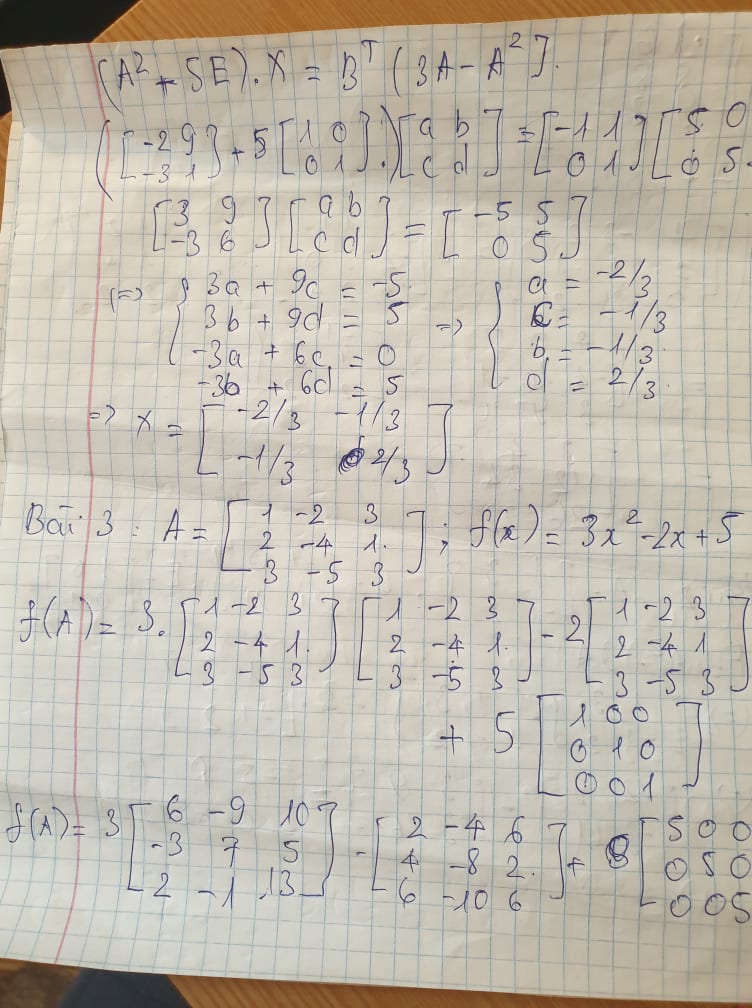 (A² + 5E). X = Bᵀ (3A - A²].
([-2 9; -3 1] + 5 [1 0; 0 1].) [a b; c d] = [-1 1; 0 1] [5 0; 0 5
[3 9; -3 6] [a b; c d] = [-5 5; 0 5]
(=> { 3a + 9c = -5 => { a = -2/3
3b + 9d = 5 c = -1/3
-3a + 6c = 0 b = -1/3
-3b + 6d = 5 d = 2/3
=> X = [-2/3 -1/3; -1/3 2/3]
Bài 3 : A = [1 -2 3; 2 -4 1; 3 -5 3] ; f(x) = 3x² - 2x + 5
f(A) = 3. [1 -2 3; 2 -4 1; 3 -5 3] [1 -2 3; 2 -4 1; 3 -5 3] - 2 [1 -2 3; 2 -4 1; 3 -5 3]
+ 5 [1 0 0; 0 1 0; 0 0 1]
f(A) = 3 [6 -9 10; -3 7 5; 2 -1 13] - [2 -4 6; 4 -8 2; 6 -10 6] + [5 0 0; 0 5 0; 0 0 5